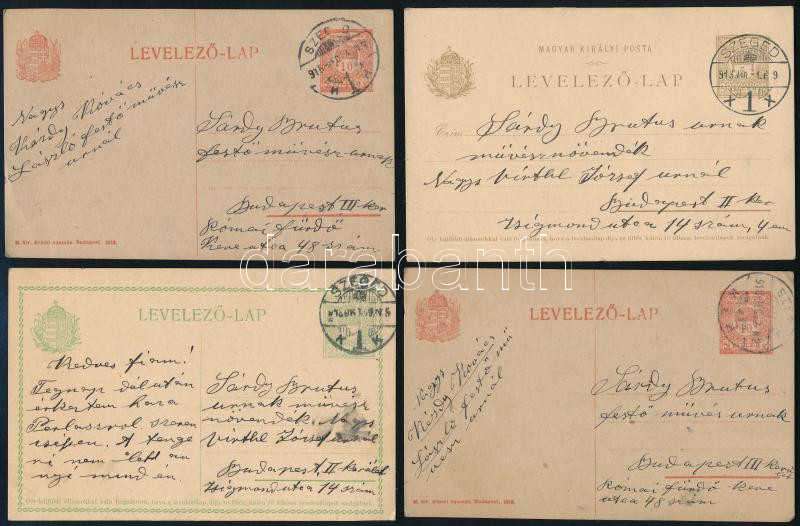 LEVELEZŐ-LAP
SZEGED
10
1
Nagys
Kárdy Kovács
László festőművész
urnál
Sárdy Brutus
festőművész urnak
Budapest III ker
Római fürdő
Keve utca 48 szám
M. kir. állami nyomda. Budapest. 1918.
MAGYAR KIRÁLYI POSTA
LEVELEZŐ-LAP
SZEGED
913
1
Czím:
Sárdy Brutus urnak
művésznövendék
Nagys Virthl József urnál
Budapest II ker
Zsigmond utca 14 szám, 4 em
LEVELEZŐ-LAP
SZEGED
1
Kedves fiam!
Tegnap délután
érkeztem haza
Perlaszról szeren
csésen. A tenge
ri nem lett an
nyi mind én.
Sárdy Brutus
urnak művész
növendék. Nagys
Virthl József urnál
Budapest, II kerület
Zsigmond utca 14 szám
LEVELEZŐ-LAP
10
Nagys
Kárdy Kovács
László festőmű
vész urnál
Sárdy Brutus
festő művés urnak
Budapest III kerület
Római fürdő Keve
utca 48 szám
M. kir. állami nyomda. Budapest. 1918.
darabanth